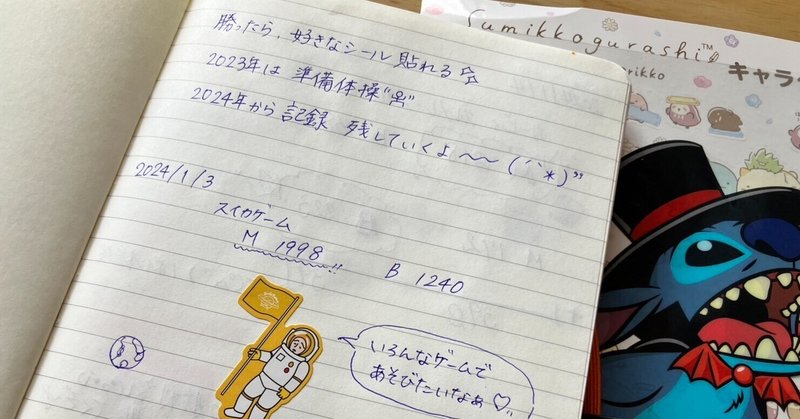 勝ったら、好きなシール貼れる
2023年は 準備体操
2024年から 記録 残していくよ〜〜 (´`*)"
2024/1/3
スイカゲーム
M 1998!!
B 1240
いろんなゲームで
あそびたいなぁ♡
Sumikkogurashi™
キャラ